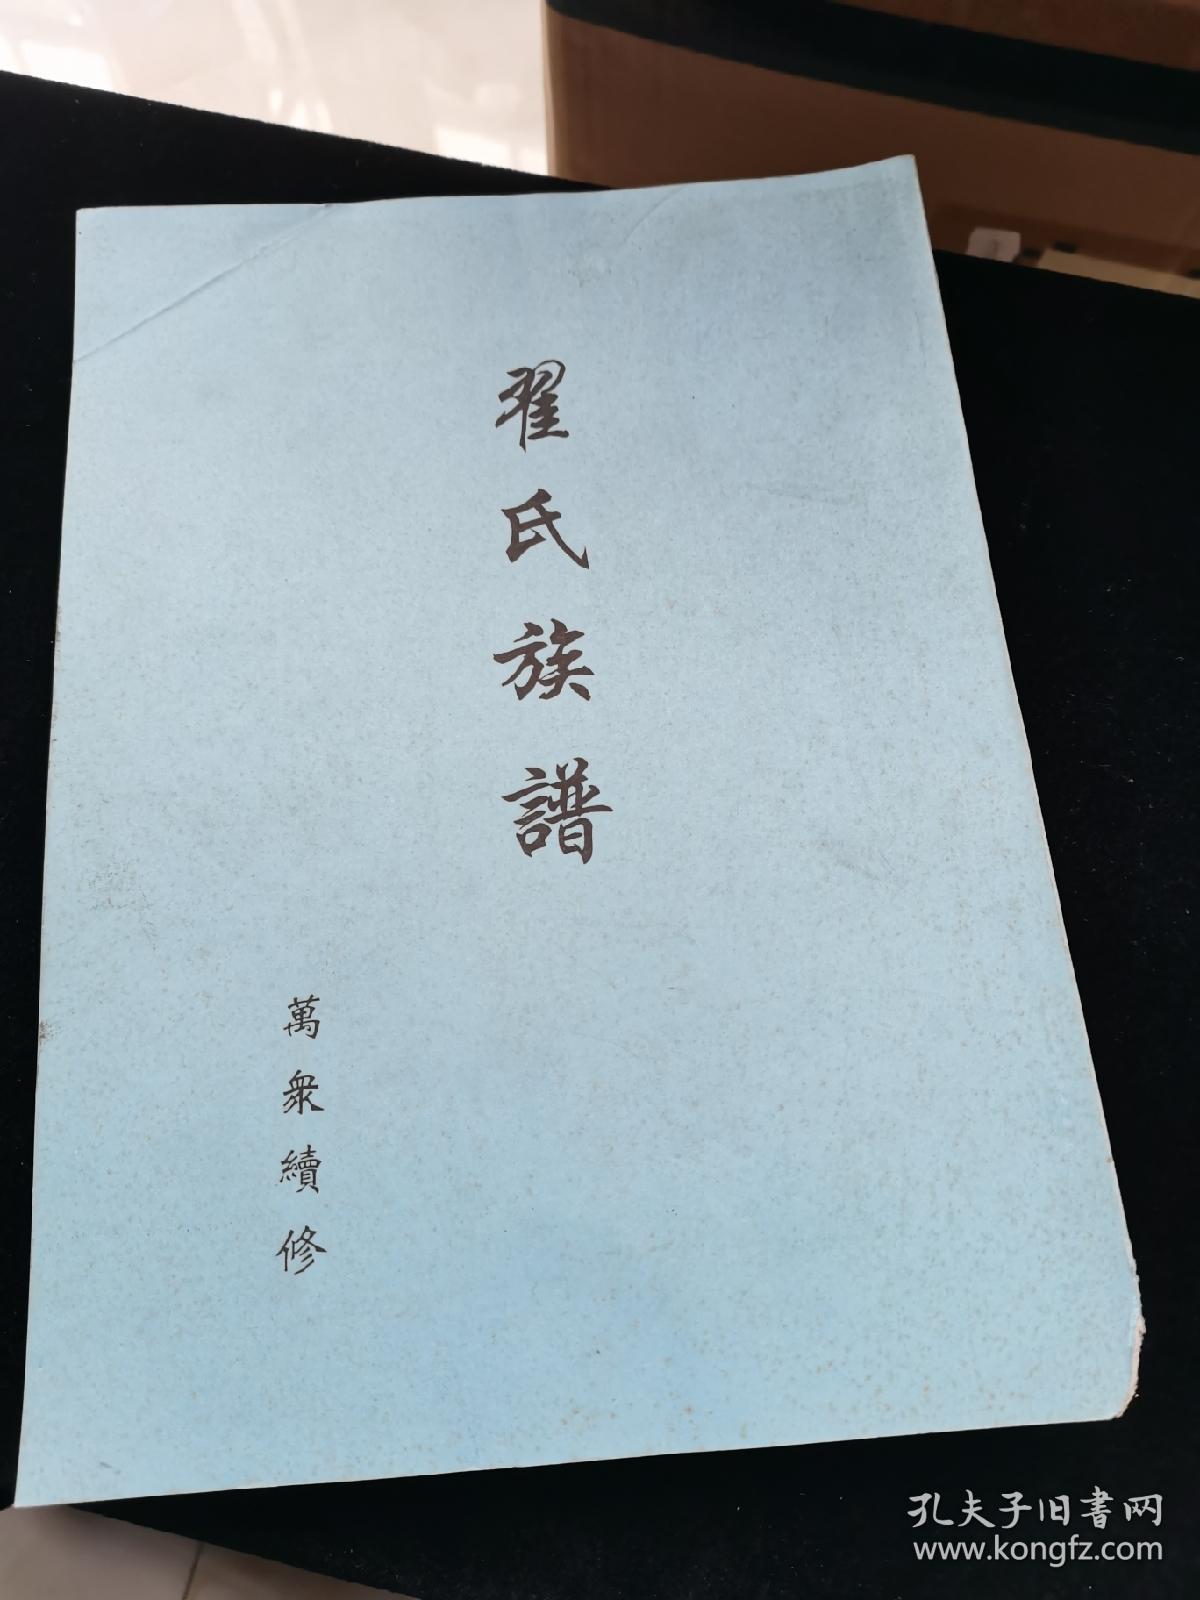 翟氏族譜
萬衆續修
孔夫子旧書网
www.kongfz.com